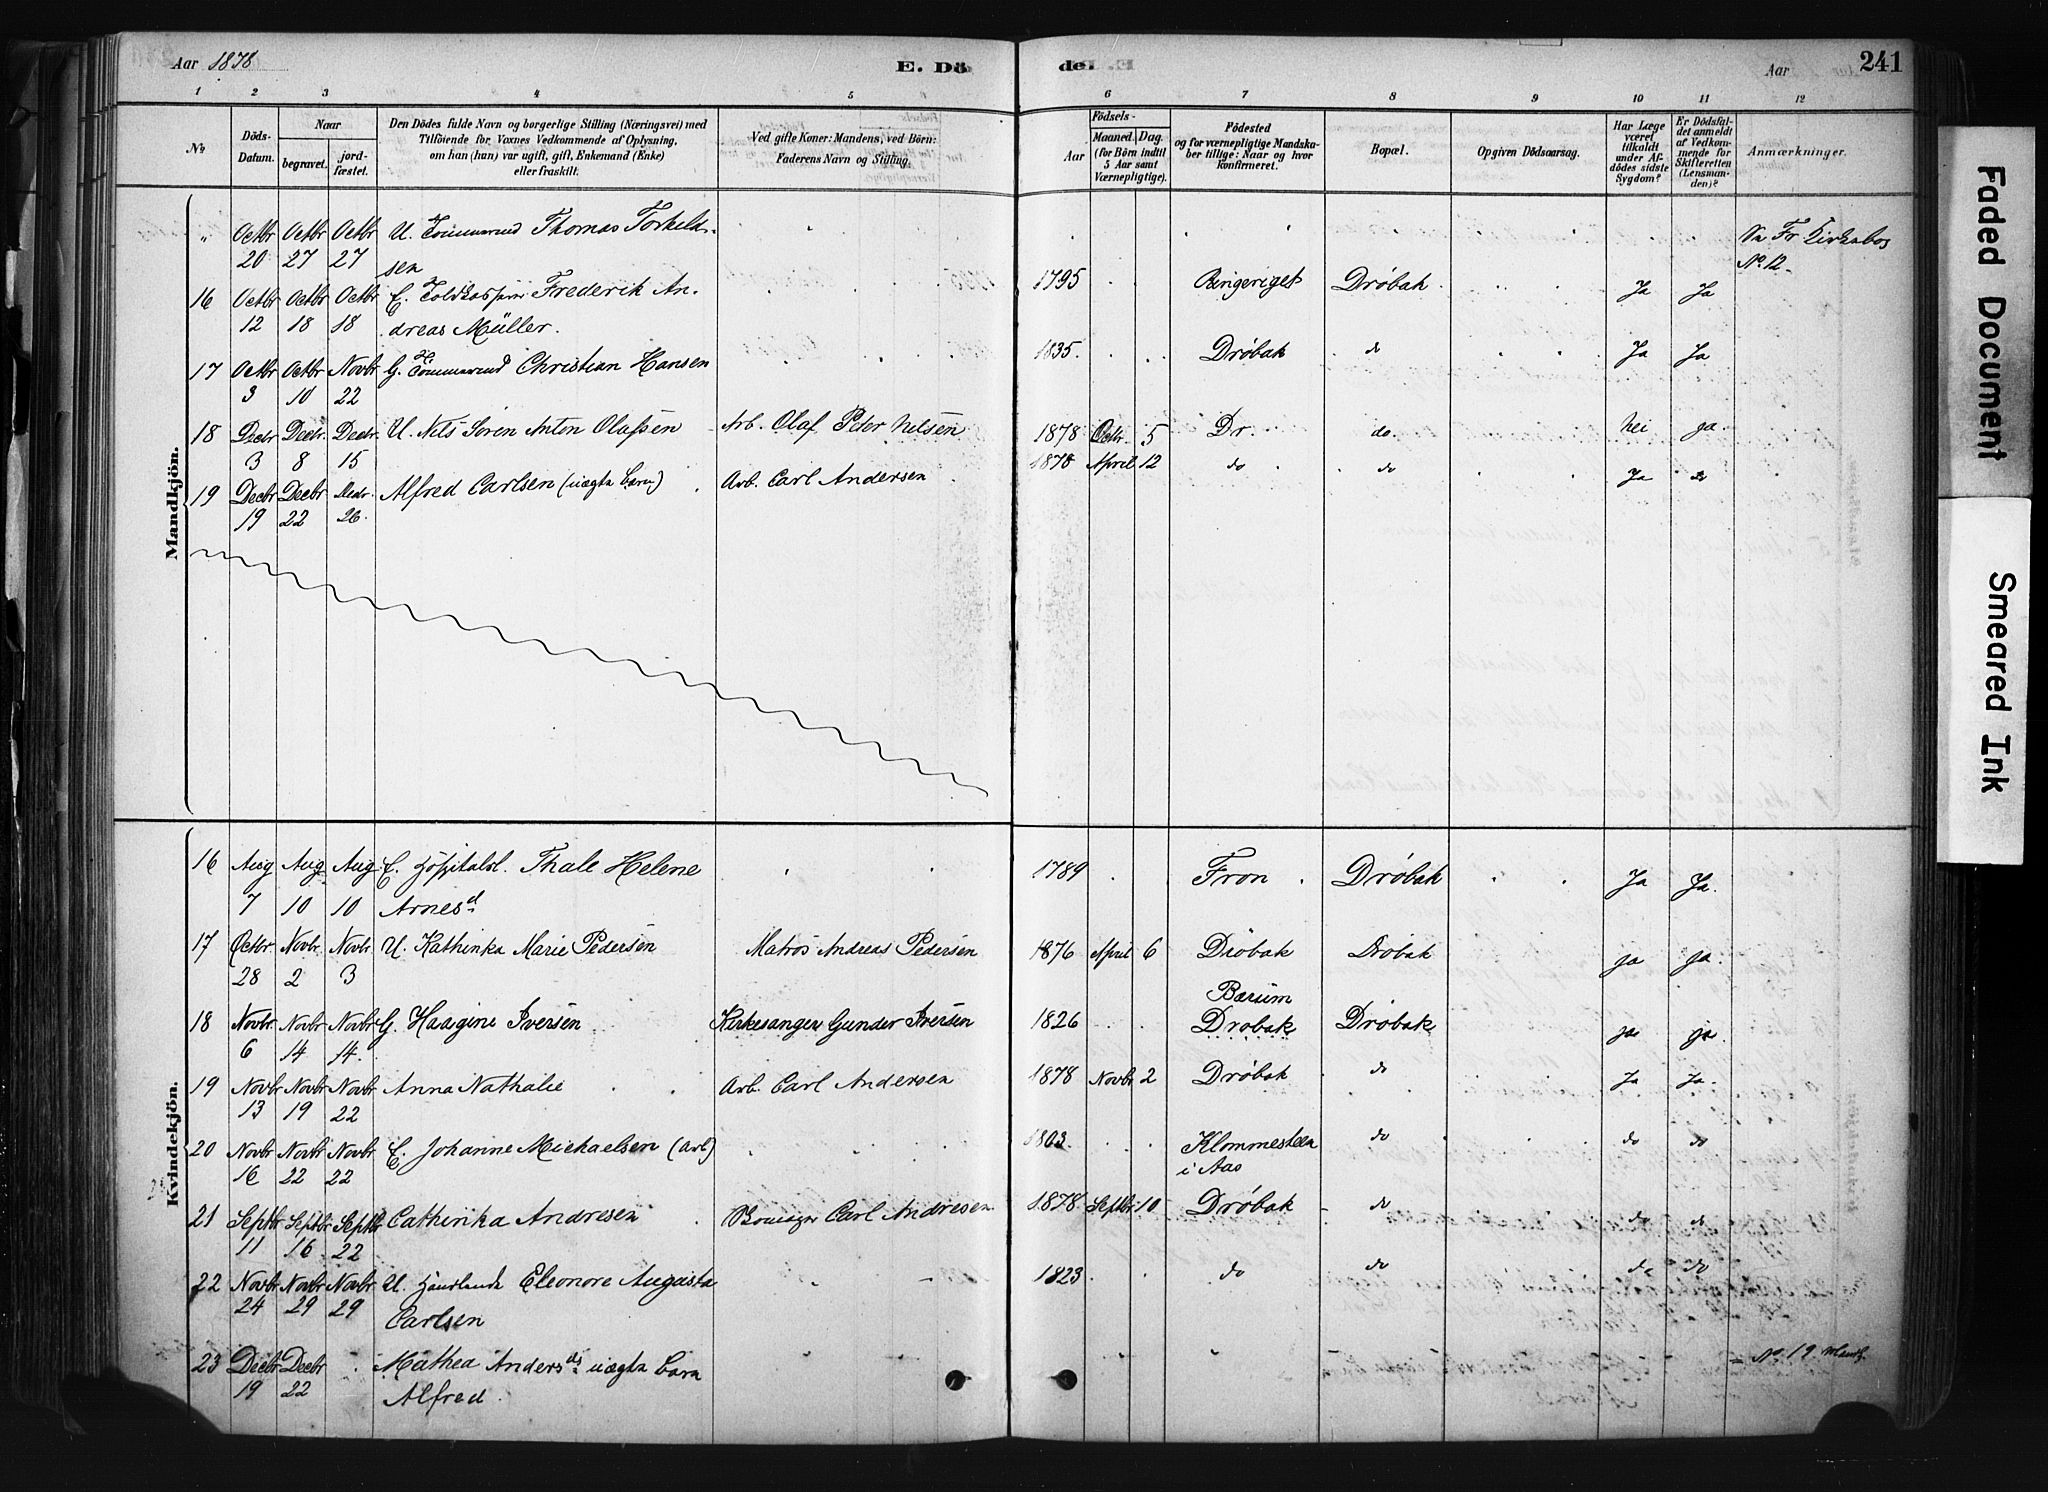 Aar 1878
E. Dö
de
Aar
241
1 2 3 4 5 6 7 8 9 10 11 12
No
Döds-Datum.
Naar
begravet.
jord-fæstet.
Den Dödes fulde Navn og borgerlige Stilling (Næringsvei) med
Tilföiende for Voxnes Vedkommende af Oplysning,
om han (hun) var ugift, gift, Enkemand (Enke)
eller fraskilt.
Ved gifte Koner: Mandens, ved Börn:
Faderens Navn og Stilling.
Födsels-
Aar
Maaned. Dag.
(for Börn indtil
5 Aar samt
Værnepligtige).
Födested
og for værnepligtige Mandska-
ber tillige: Naar og hvor
konfirmeret.
Bopæl.
Opgiven Dödsaarsag.
Har Læge
været
tilkaldt
under Af-
dödes sidste
Sygdom?
Er Dödsfal-
det anmeldt
af Vedkom-
mende for
Skifteretten
(Lensman-
den)?
Anmærkninger.
Mandkjön.
" Octbr 20 Octbr 27 Octbr 27 U. Tømmermd Thomas Torkeld-
sen
Fr Kirkebog
No 12
16 Octbr 12 Octbr 18 Octbr 18 E. Frederik An-
dreas Müller. 1795 Ringeriget Drøbak Ja Ja
17 Octbr 3 Octbr 10 Novbr 22 G. Tømmermd Christian Hansen 1835. Drøbak do Ja Ja
18 Decbr 3 Decbr. 8 Decbr 15 U. Nils Søren Anton Olafsen Arb. Olaf Peter Nilsen 1878 Octbr 5 Dr. do. Nei ja.
19 Decbr 19 Decbr 22 Decbr. 26. Alfred Carlsen (uægte barn) Arb. Carl Andersen 1878 April 12 do do Ja do
Kvindekjön.
16 Aug 7 Aug 10 Aug 10 E. Hospitalsl. Thale Helene
Arnesd 1789 Fron Drøbak Ja Ja.
17 Octbr. 28 Novbr. 2 Novbr. 3 U. Kathinka Marie Pedersen Matros Andreas Pedersen 1876 April 6 Drøbak Drøbak ja ja.
18 Novbr. 6 Novbr 14 Novbr 14. G. Haagine Iversen Kirkesanger Gunder Iversen 1826 Bærum
Drøbak Drøbak ja ja.
19 Novbr 13 Novbr 19 Novbr 22 Anna Nathalie Arb. Carl Andersen 1878 Novbr 2 Drøbak do Ja Ja.
20 Novbr 16 Novbr 22 Novbr 22 E. Johanne Michaelsen (Arb) 1803. Klommesteen
i Aas do do do
21 Septbr 11 Septbr 16 Septbr 22 Cathinka Andresen Carl Andresen 1878 Septbr 10 Drøbak do do do
22 Novbr 24 Novbr 29 Novbr 29 U. Eleonore Augusta
Carlsen 1823 do do do do
23 Decbr 19 Decbr 22 Mathea Andersds uægte barn
Alfred. = No 19 Mandk.
Faded Document
Smeared Ink